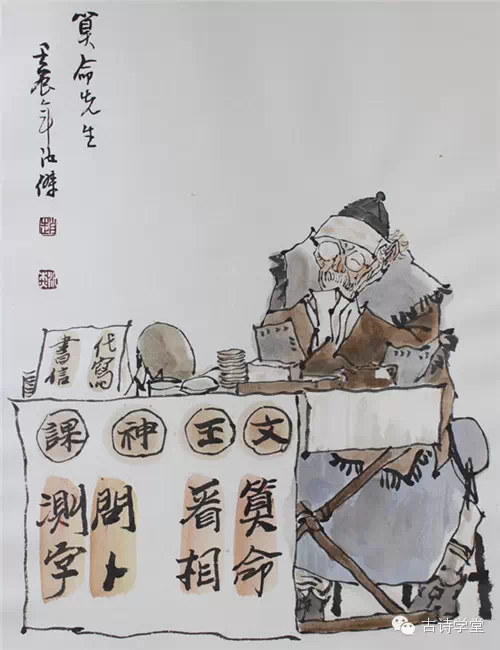 算命先生
壬辰年傑
代寫
書信
文王神課
算命
看相
問卜
測字
古诗学堂